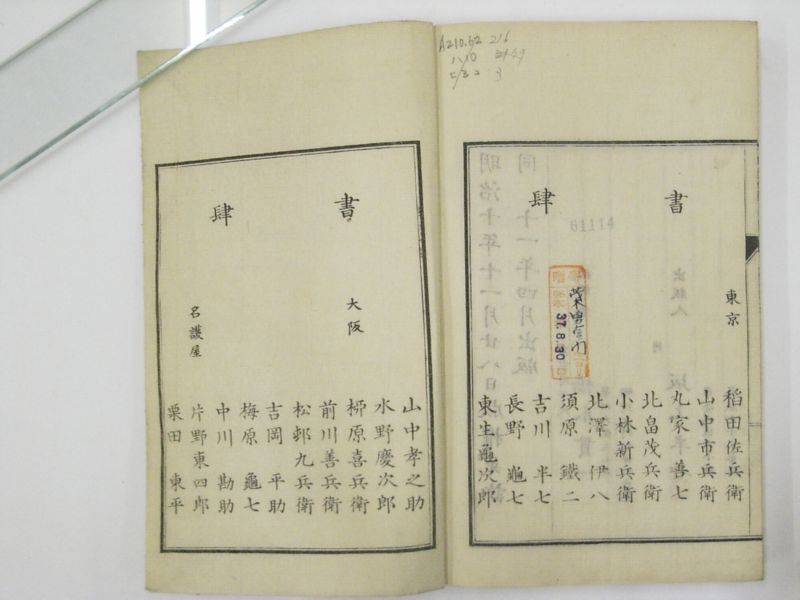 A210.62 216
書肆
東京
稻田佐兵衛
山中市兵衛
丸家善七
北畠茂兵衛
小林新兵衛
北澤伊八
須原鐵二
吉川半七
長野龜七
東生龜次郎
37.8.30
01114
明治十年十一月廿八日
同十一年四月出版
出版人
書肆
大阪
山中孝之助
水野慶次郎
柳原喜兵衛
前川善兵衛
松邨九兵衛
吉岡平助
梅原龜七
中川勘助
名護屋
片野東四郎
栗田東平